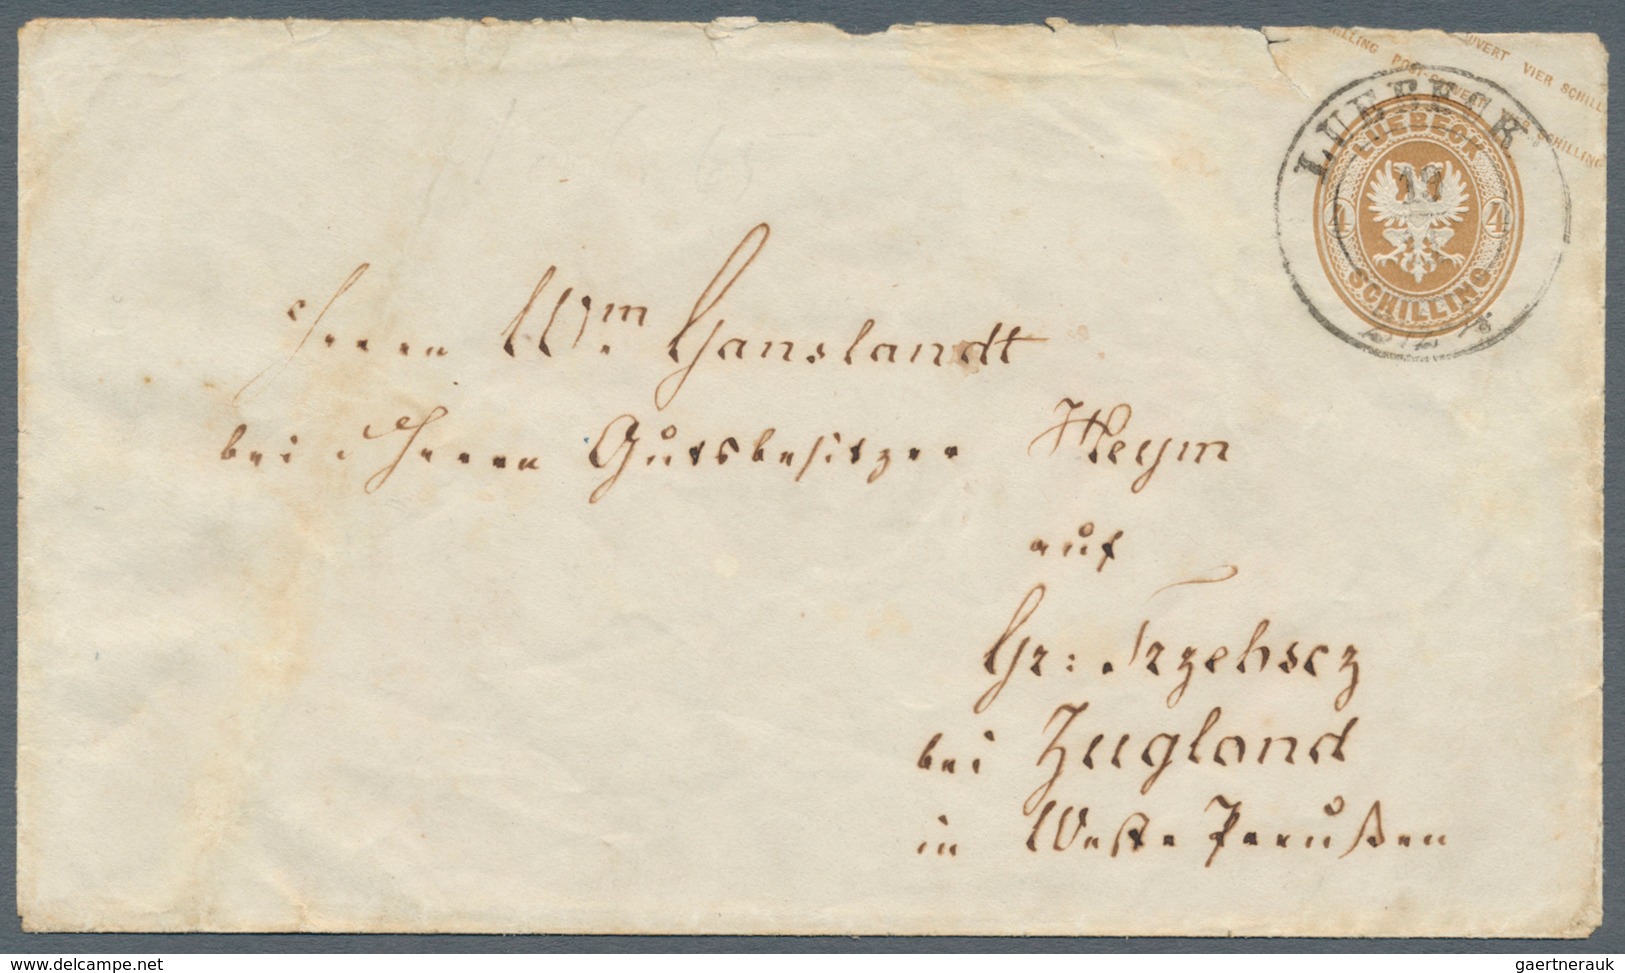 HILLING POST-COUVERT
UVERT VIER SCHILL
SCHILLING
LUEBECK
19
LUEBECK
4 4
SCHILLING
Herrn Wm. Ganslandt
bei Herrn Gutsbesitzer Heym
auf
Gr: Trzebscz
bei Zugland
in West-Preußen
delcampe.net
gaertnerauk